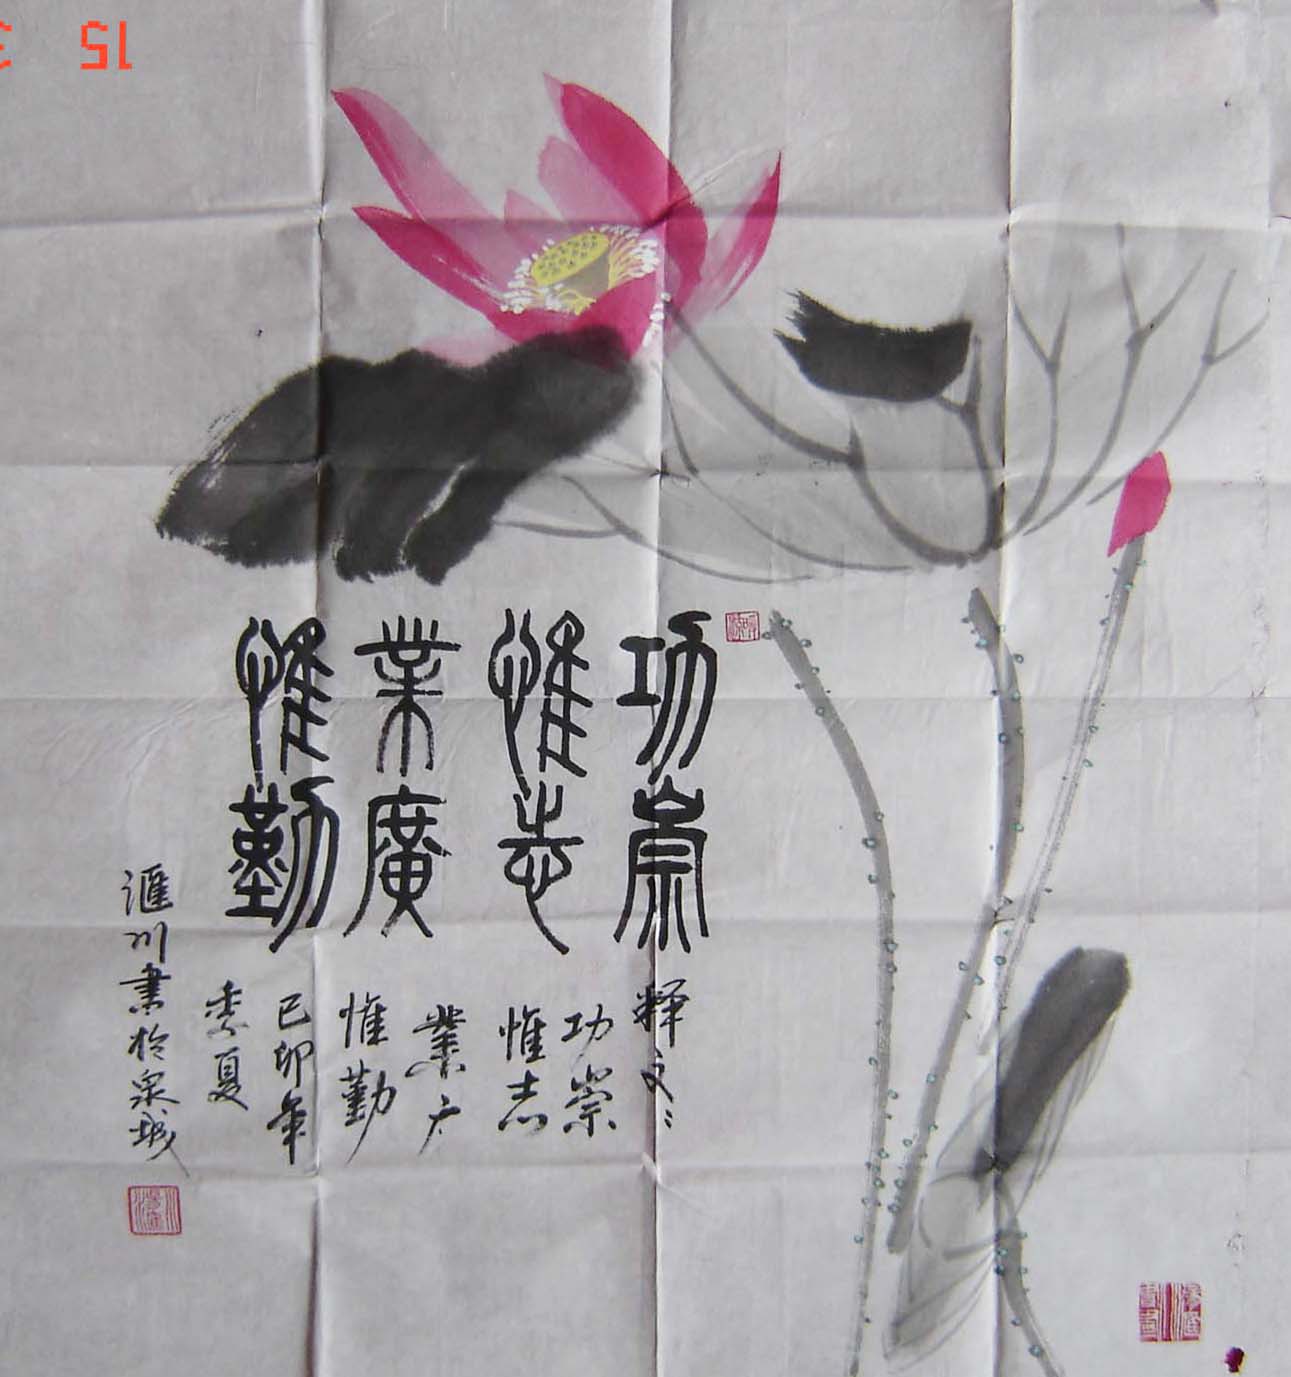 功崇
惟志
業廣
惟勤
释文：
功崇
惟志
業广
惟勤
己卯年
季夏
滙川書於泉城
15 3